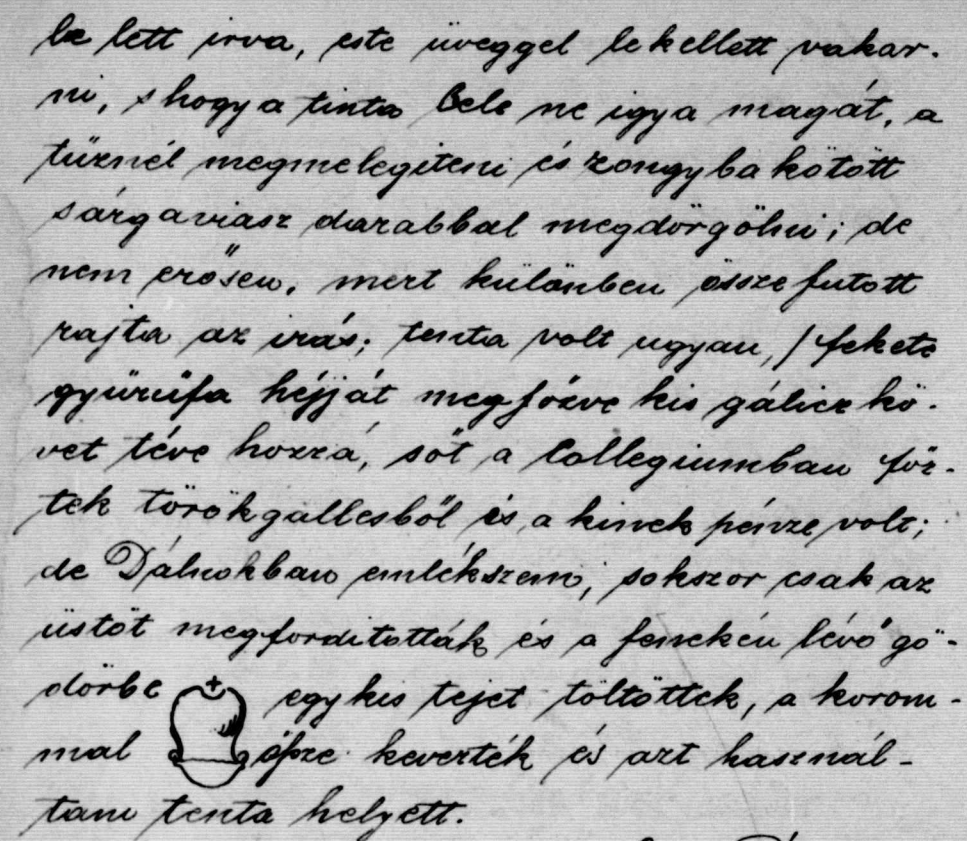 le lett irva, este üveggel lekellett vakar-
ni, s hogy a tinta bele ne igya magát, a
tüznél megmelegiteni és rongyba kötött
sárgaviasz darabbal megdörgölni; de
nem erősen, mert különben össze futott
rajta az irás; tenta volt ugyan, / fekete
gyürüfa héjját megfőzve kis gálicz kö-
vet téve hozzá, sőt a Collegiumban főz-
tek törökgallesből is a kinek pénze volt;
de Dálnokban emlékszem, sokszor csak az
üstöt megforditották és a fenekén lévő gö-
dörbe egy kis tejet töltöttek, a korom-
mal össze keverték és azt használ-
tam tenta helyett.